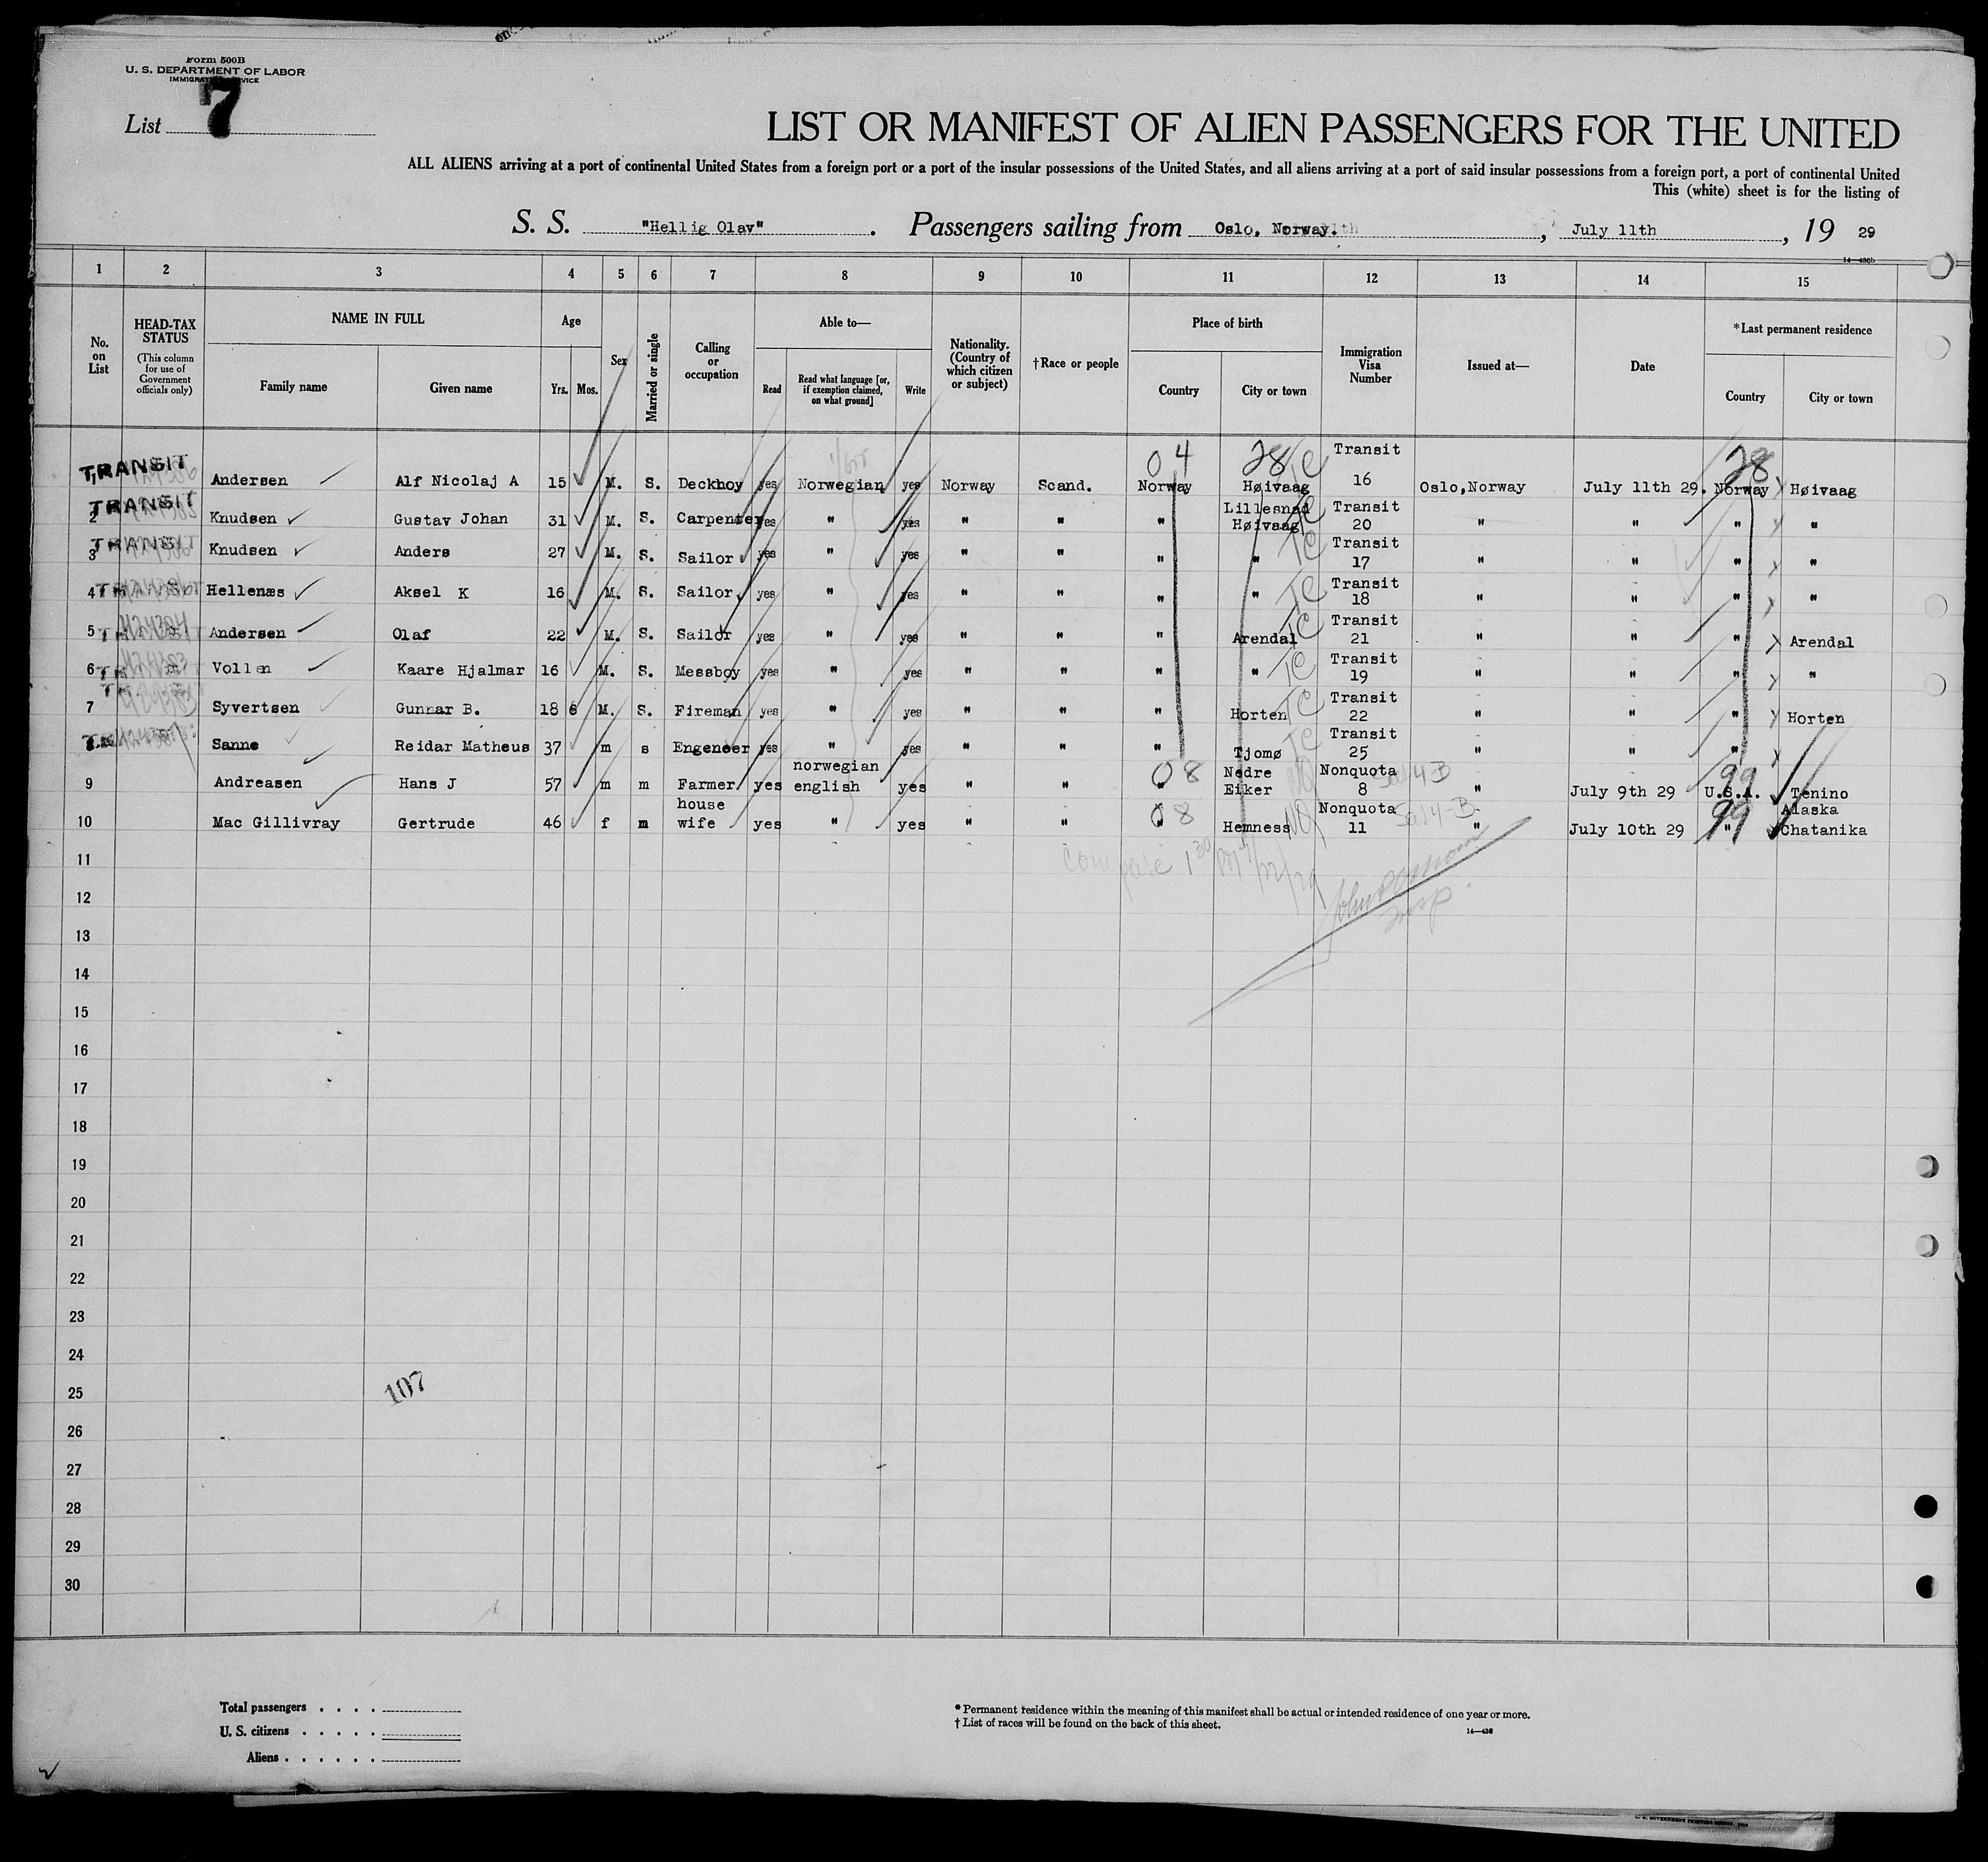 Form 500B
U. S. DEPARTMENT OF LABOR
IMMIGRATION SERVICE
List 7
LIST OR MANIFEST OF ALIEN PASSENGERS FOR THE UNITED
ALL ALIENS arriving at a port of continental United States from a foreign port or a port of the insular possessions of the United States, and all aliens arriving at a port of said insular possessions from a foreign port, a port of continental United
This (white) sheet is for the listing of
S. S. "Hellig Olav". Passengers sailing from Oslo, Norway., July 11th, 19 29
14—430b
1 2 3 4 5 6 7 8 9 10 11 12 13 14 15
No. on List
HEAD-TAX STATUS (This column for use of Government officials only)
NAME IN FULL
Family name Given name
Age
Yrs. Mos.
Sex
Married or single
Calling or occupation
Able to—
Read
Read what language [or, if exemption claimed, on what ground]
Write
Nationality. (Country of which citizen or subject)
†Race or people
Place of birth
Country City or town
Immigration Visa Number
Issued at—
Date
*Last permanent residence
Country City or town
04 28 TC Transit 28
1 TRANSIT Andersen Alf Nicolaj A 15 M. S. Deckboy yes Norwegian yes Norway Scand. Norway Høivaag 16 Oslo,Norway July 11th 29. Norway Høivaag
Lillesand TC Transit
2 TRANSIT Knudsen Gustav Johan 31 M. S. Carpenter yes " yes " " " Høivaag 20 " " " "
TC Transit
3 TRANSIT Knudsen Anders 27 M. S. Sailor yes " yes " " " " 17 " " " "
TC Transit
4 Hellenæs Aksel K 16 M. S. Sailor yes " yes " " " " 18 " " " "
TC Transit
5 Andersen Olaf 22 M. S. Sailor yes " yes " " " Arendal 21 " " " Arendal
TC Transit
6 Vollen Kaare Hjalmar 16 M. S. Messboy yes " yes " " " " 19 " " " "
TC Transit
7 Syvertsen Gunnar B. 18 6 M. S. Fireman yes " yes " " " Horten 22 " " " Horten
TC Transit
8 Sanne Reidar Matheus 37 m s Engeneer yes " yes " " " Tjomø 25 " " "
norwegian 08 Nedre Nonquota 99
9 Andreasen Hans J 57 m m Farmer yes english yes " " " Eiker 8 " July 9th 29 U.S.A. Tenino
house 08 Nonquota 99 Alaska
10 Mac Gillivray Gertrude 46 f m wife yes " yes " " " Hemness 11 " July 10th 29 " Chatanika
11
12
13
14
15
16
17
18
19
20
21
22
23
24
25
107
26
27
28
29
30
Total passengers
U. S. citizens
Aliens
* Permanent residence within the meaning of this manifest shall be actual or intended residence of one year or more.
† List of races will be found on the back of this sheet.
14—430